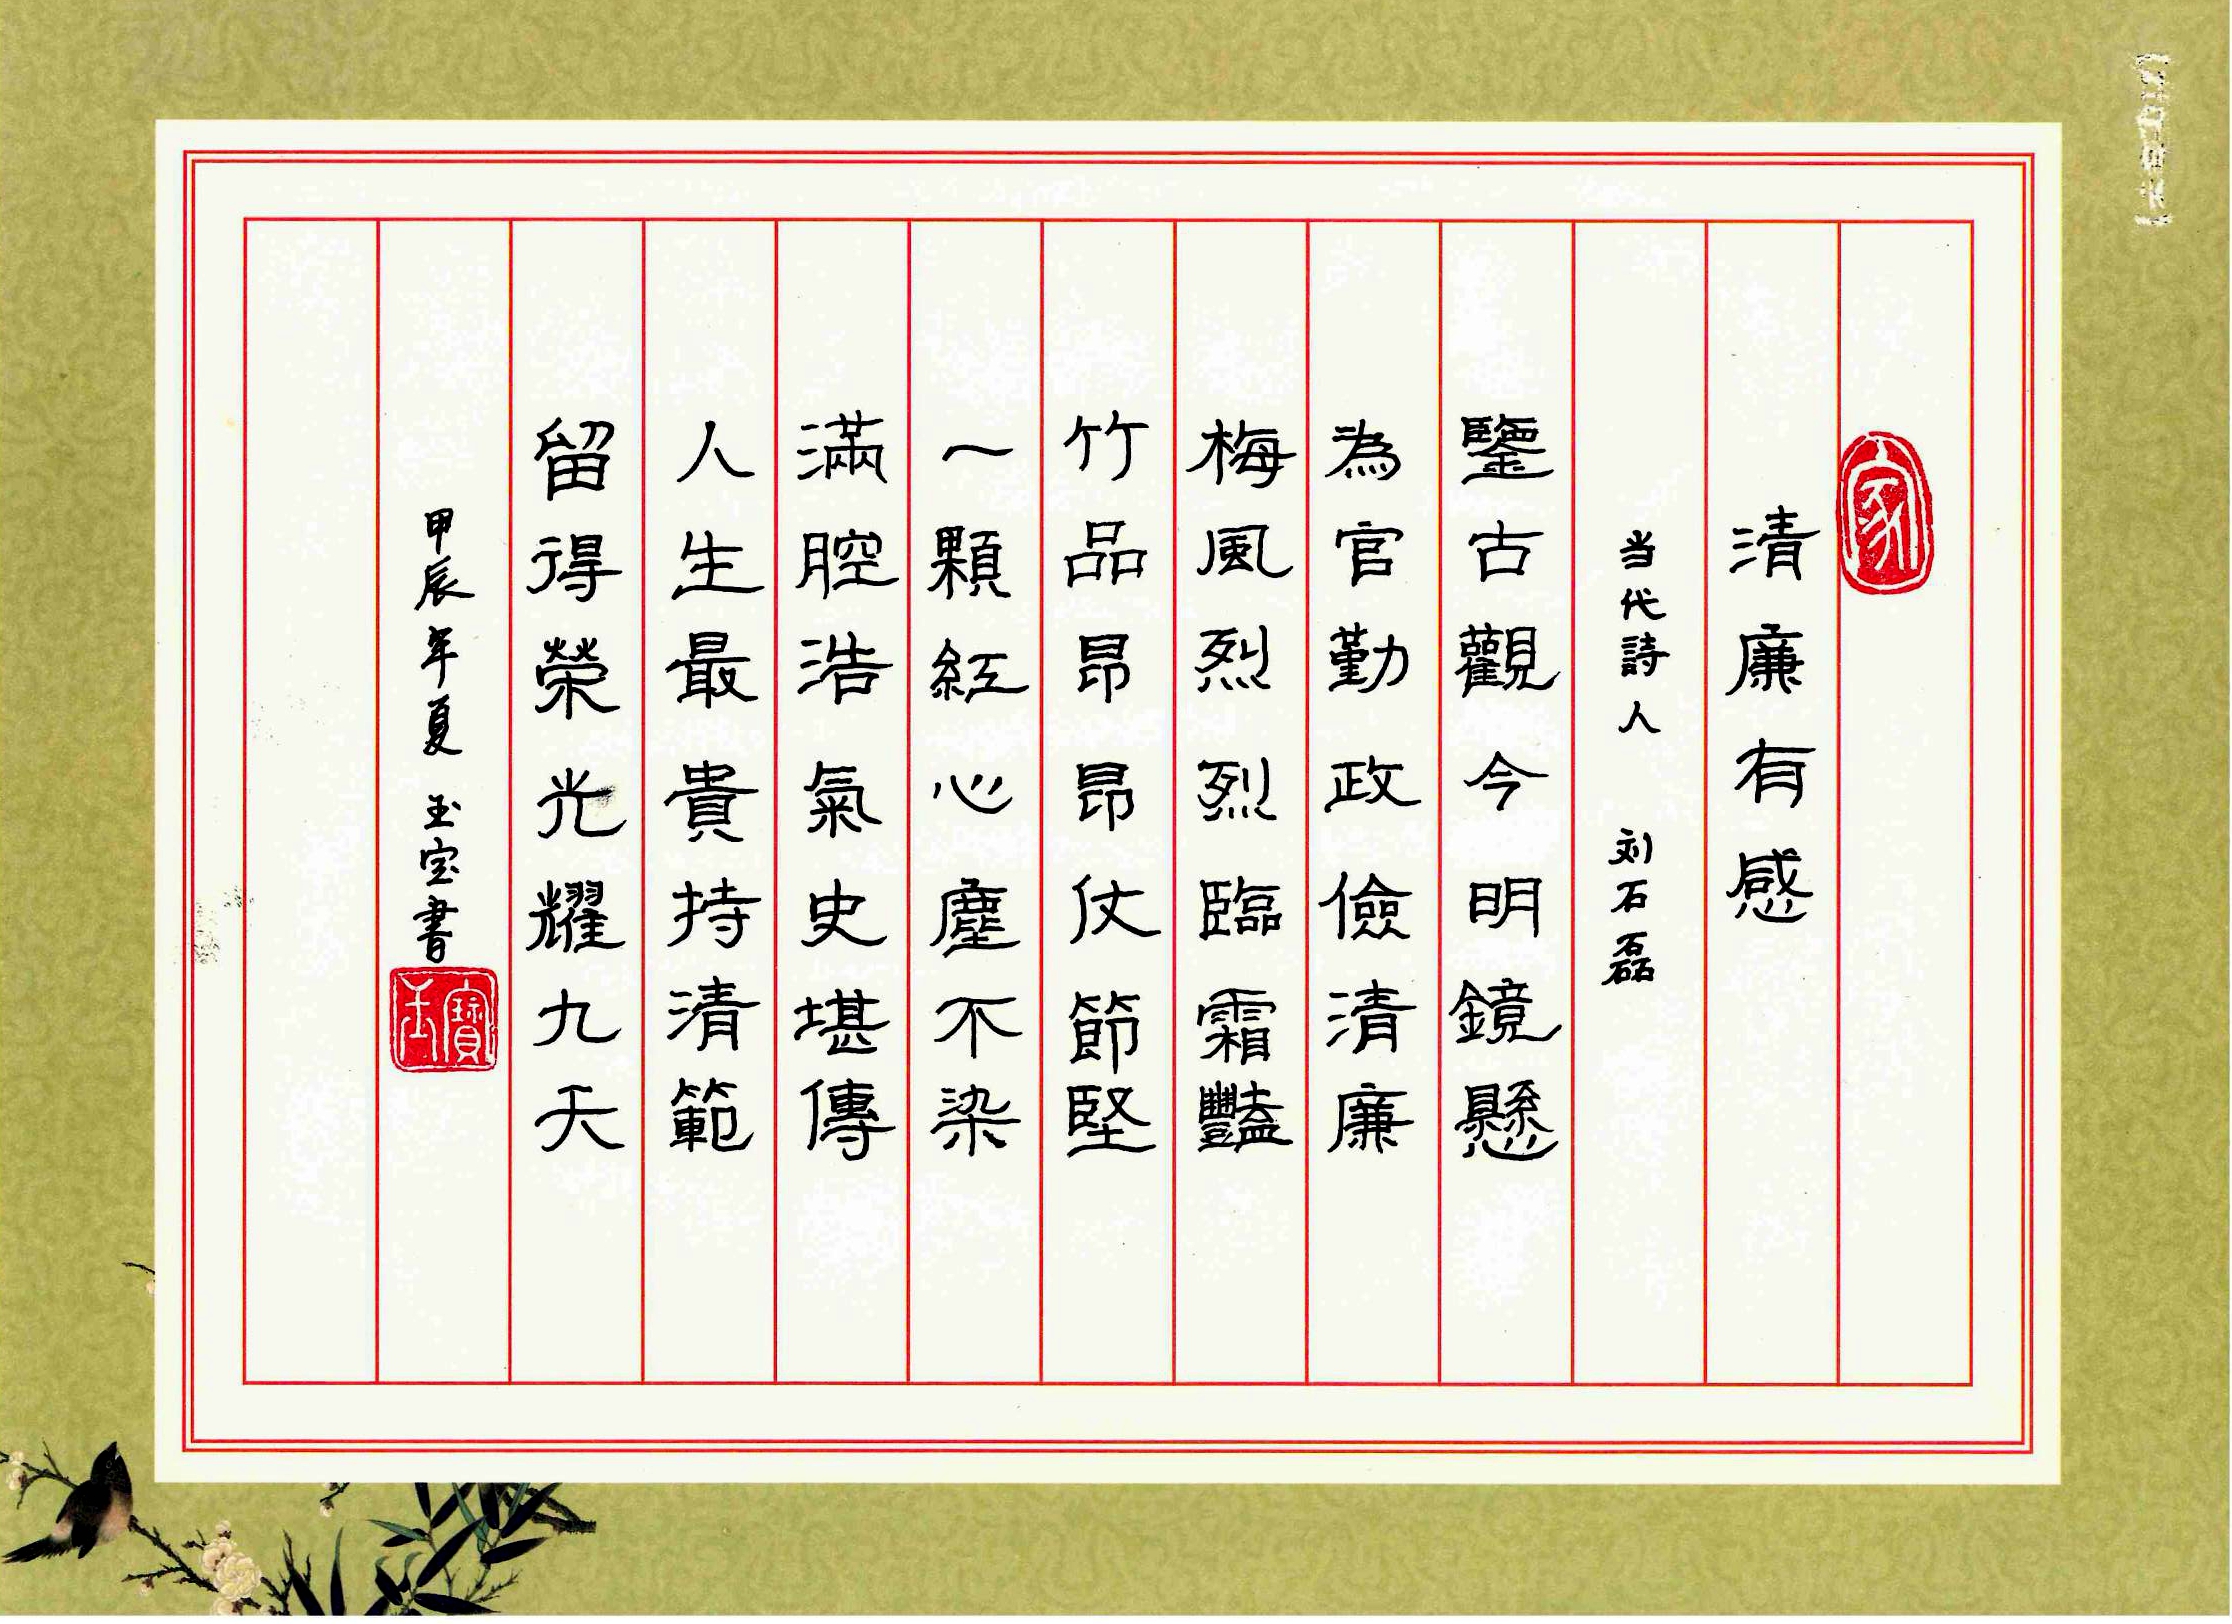 清廉有感
当代詩人 刘石磊
鑒古觀今明鏡懸
為官勤政儉清廉
梅風烈烈臨霜豔
竹品昂昂仗節堅
一顆紅心塵不染
滿腔浩氣史堪傳
人生最貴持清範
留得榮光耀九天
甲辰年夏 玉宝書
玉寶